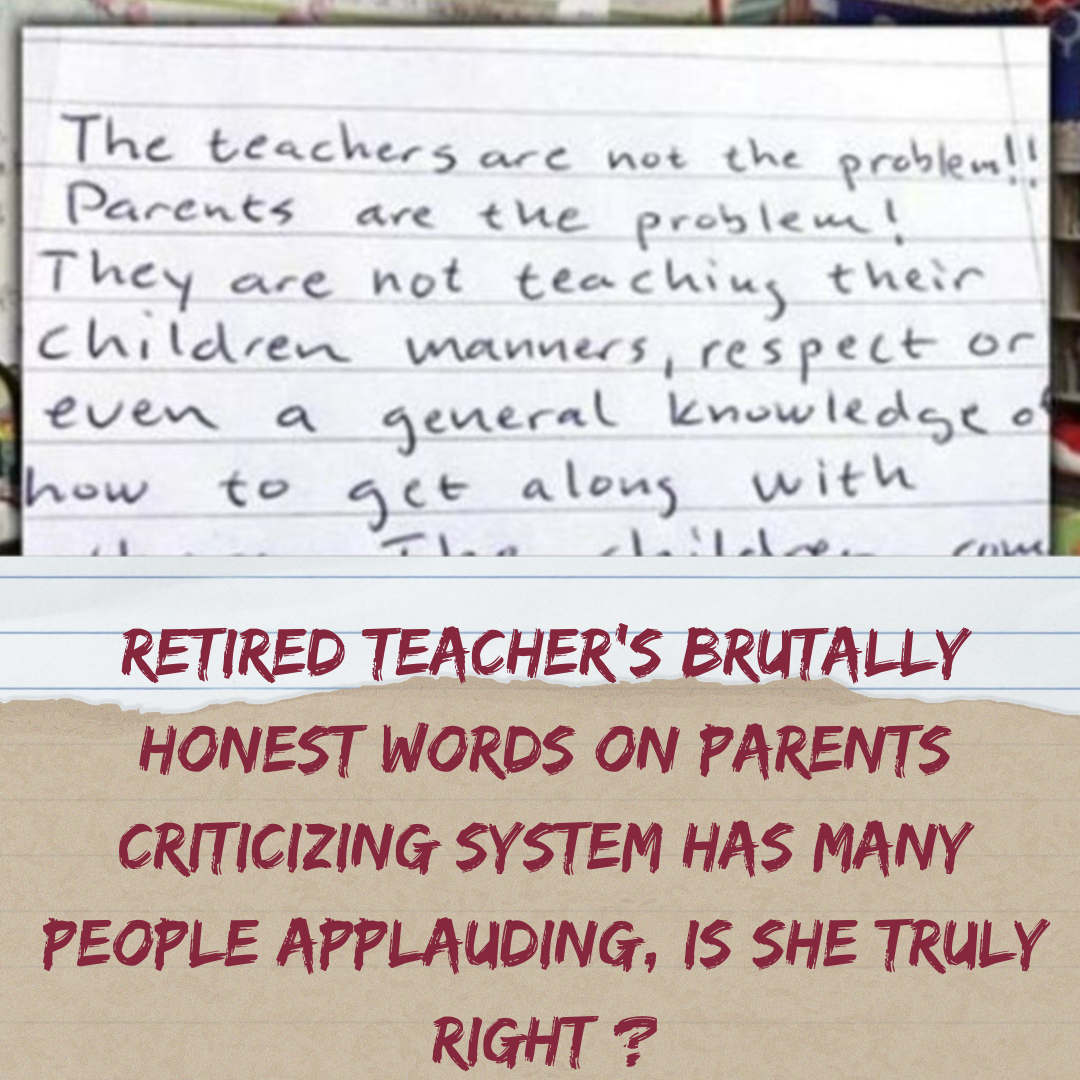 The teachers are not the problem!!
Parents are the problem!
They are not teaching their
children manners, respect or
even a general knowledge of
how to get along with
The children
RETIRED TEACHER'S BRUTALLY
HONEST WORDS ON PARENTS
CRITICIZING SYSTEM HAS MANY
PEOPLE APPLAUDING, IS SHE TRULY
RIGHT ?